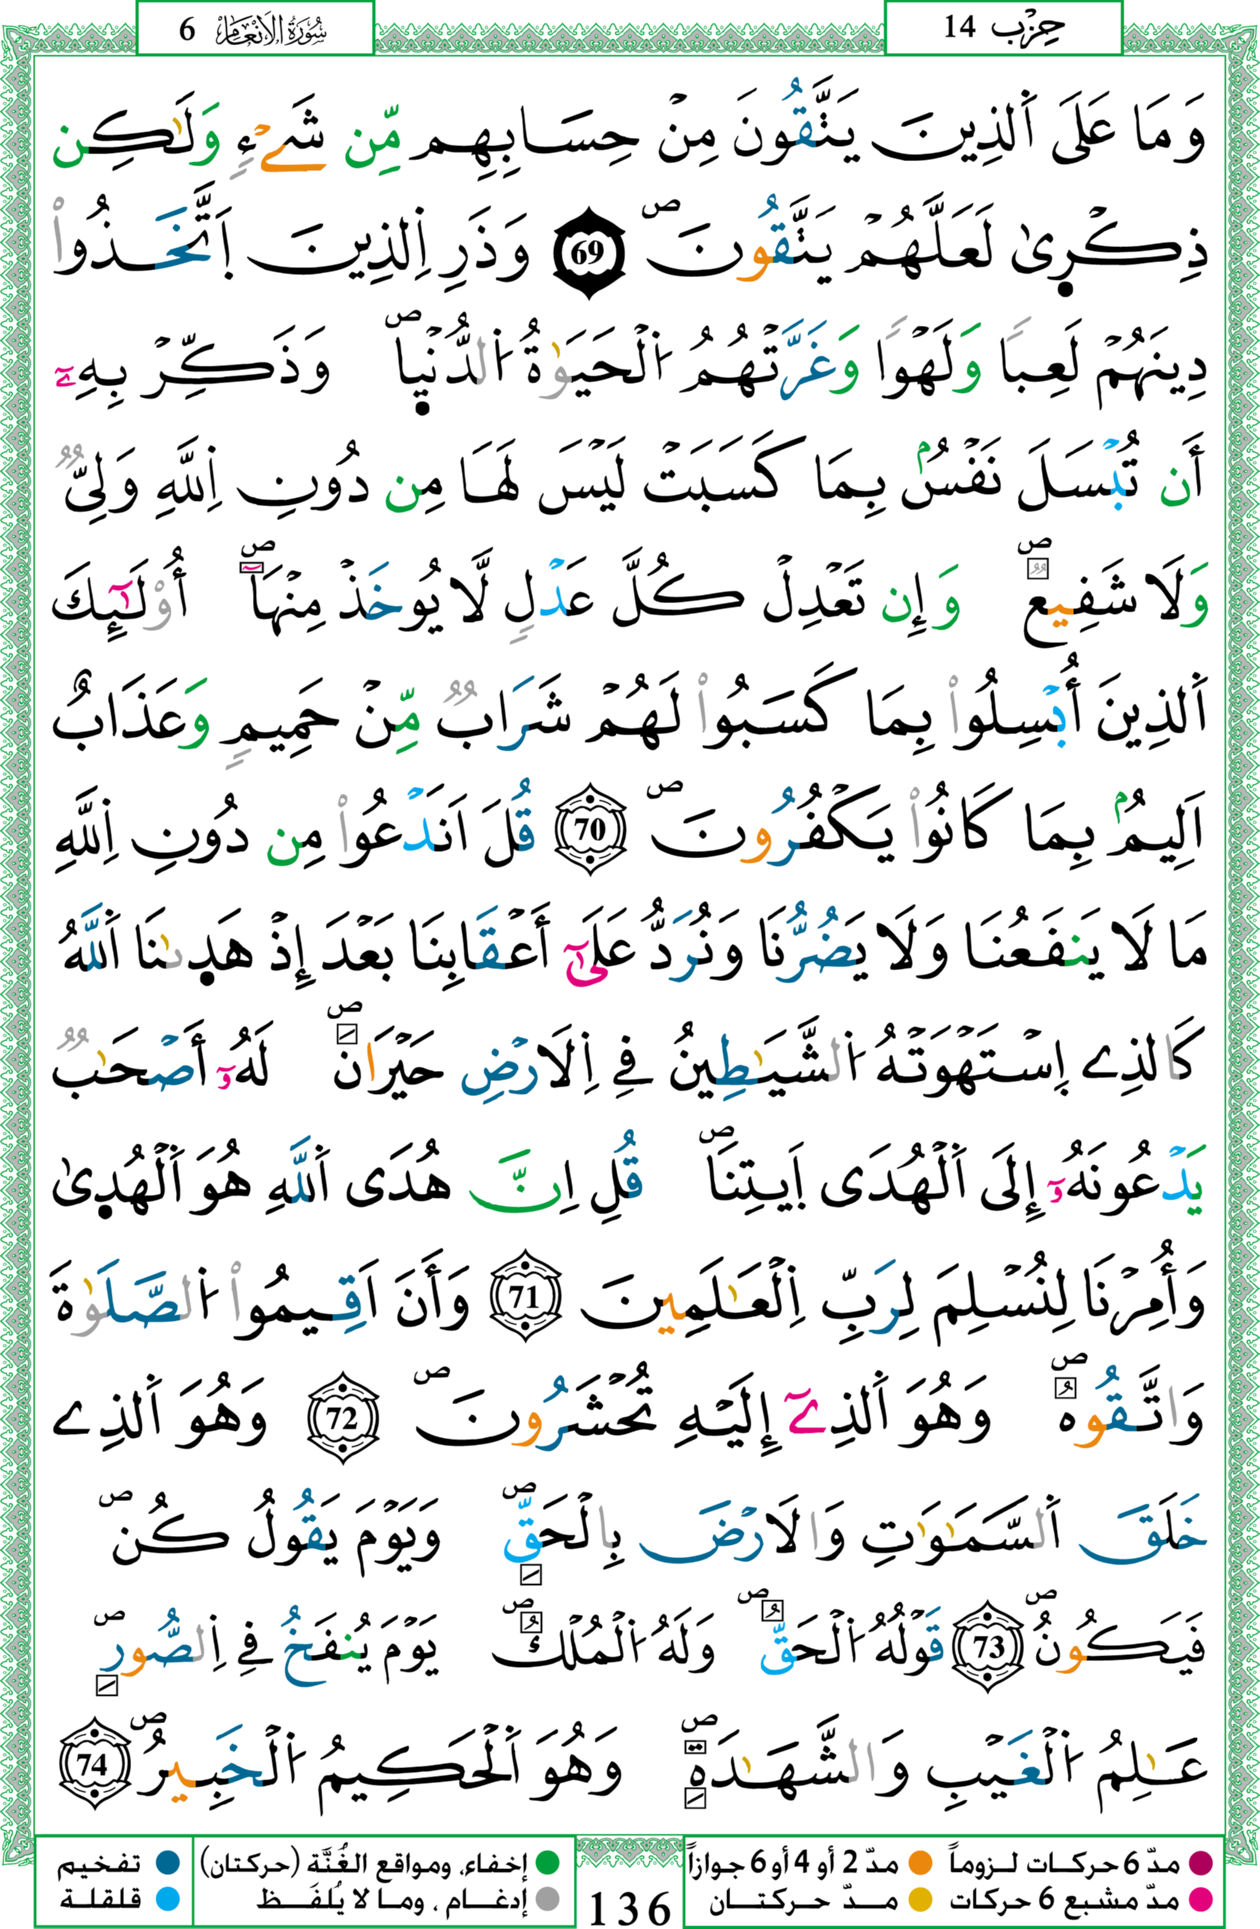 حِزْب 14
سُورَةُ الأَنْعَام 6
وَمَا عَلَى اَلذِينَ يَتَّقُونَ مِنْ حِسَابِهِم مِّن شَےْءٖ وَلَٰكِن
ذِكْر۪ىٰ لَعَلَّهُمْ يَتَّقُونَۖ 69 وَذَرِ اِلذِينَ اَتَّخَذُواْ
دِينَهُمْ لَعِباٗ وَلَهْواٗ وَغَرَّتْهُمُ اُلْحَيَوٰةُ اُلدُّنْي۪اۖ وَذَكِّرْ بِهِۦٓ
أَن تُبْسَلَ نَفْسُۢ بِمَا كَسَبَتْ لَيْسَ لَهَا مِن دُونِ اِللَّهِ وَلِيّٞ
وَلَا شَفِيعٞۖ وَإِن تَعْدِلْ كُلَّ عَدْلٖ لَّا يُوخَذْ مِنْهَآۖ أُوْلَٰٓئِكَ
اَلذِينَ أُبْسِلُواْ بِمَا كَسَبُواْ لَهُمْ شَرَابٞ مِّنْ حَمِيمٖ وَعَذَابٌ
اَلِيمُۢ بِمَا كَانُواْ يَكْفُرُونَۖ 70 قُلَ اَنَدْعُواْ مِن دُونِ اِللَّهِ
مَا لَا يَنفَعُنَا وَلَا يَضُرُّنَا وَنُرَدُّ عَلَىٰٓ أَعْقَابِنَا بَعْدَ إِذْ هَد۪يٰنَا اَللَّهُ
كَالذِے اِسْتَهْوَتْهُ اُلشَّيَٰطِينُ فِے اِلَارْضِ حَيْرَانَۖ لَهُۥٓ أَصْحَٰبٞ
يَدْعُونَهُۥٓ إِلَى اَلْهُدَى اَيتِنَاۖ قُلِ اِنَّ هُدَى اَللَّهِ هُوَ اَلْهُد۪ىٰ
وَأُمِرْنَا لِنُسْلِمَ لِرَبِّ اِلْعَٰلَمِينَ 71 وَأَنَ اَقِيمُواْ اُلصَّلَوٰةَ
وَاتَّقُوهُۖ وَهُوَ اَلذِےٓ إِلَيْهِ تُحْشَرُونَۖ 72 وَهُوَ اَلذِے
خَلَقَ اَلسَّمَٰوَٰتِ وَالَارْضَ بِالْحَقِّۖ وَيَوْمَ يَقُولُ كُنۖ
فَيَكُونُۖ 73 قَوْلُهُ اُلْحَقُّۖ وَلَهُ اُلْمُلْكُۖ يَوْمَ يُنفَخُ فِے اِلصُّورِۖ
عَٰلِمُ اُلْغَيْبِ وَالشَّهَٰدَةِۖ وَهُوَ اَلْحَكِيمُ اُلْخَبِيرُۖ 74
مدّ 6 حركات لـزوماً مدّ 2 أو 4 أو 6 جوازاً
مدّ مشبع 6 حركات مـدّ حركتـــان
136
إخفاء، ومواقع الغُنَّة (حركتان) تفخيم
إدغـام ، ومـا لا يُلفَـظ قلقلة